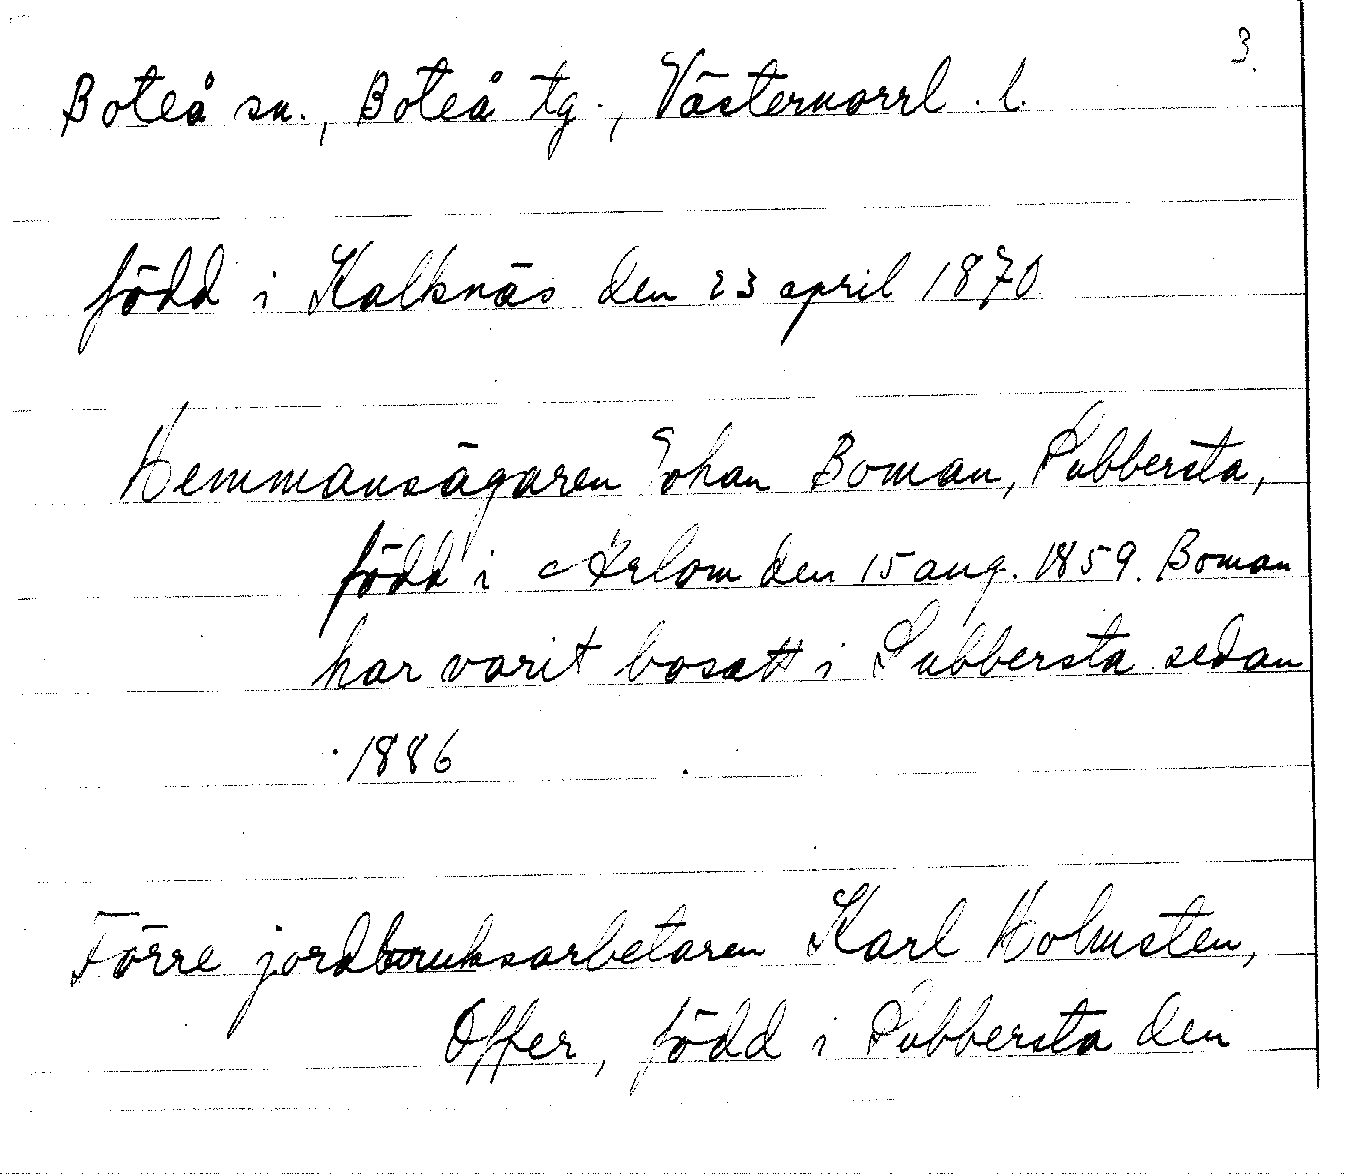 3.
Boteå sn., Boteå tg., Västernorrl. l.
född i Kalknäs den 23 april 1870
Hemmansägaren Johan Boman, Subbersta,
född i Ärlom den 15 aug. 1859. Boman
har varit bosatt i Subbersta sedan
1886
Förre jordbruksarbetaren Karl Holmsten,
Offer, född i Subbersta den